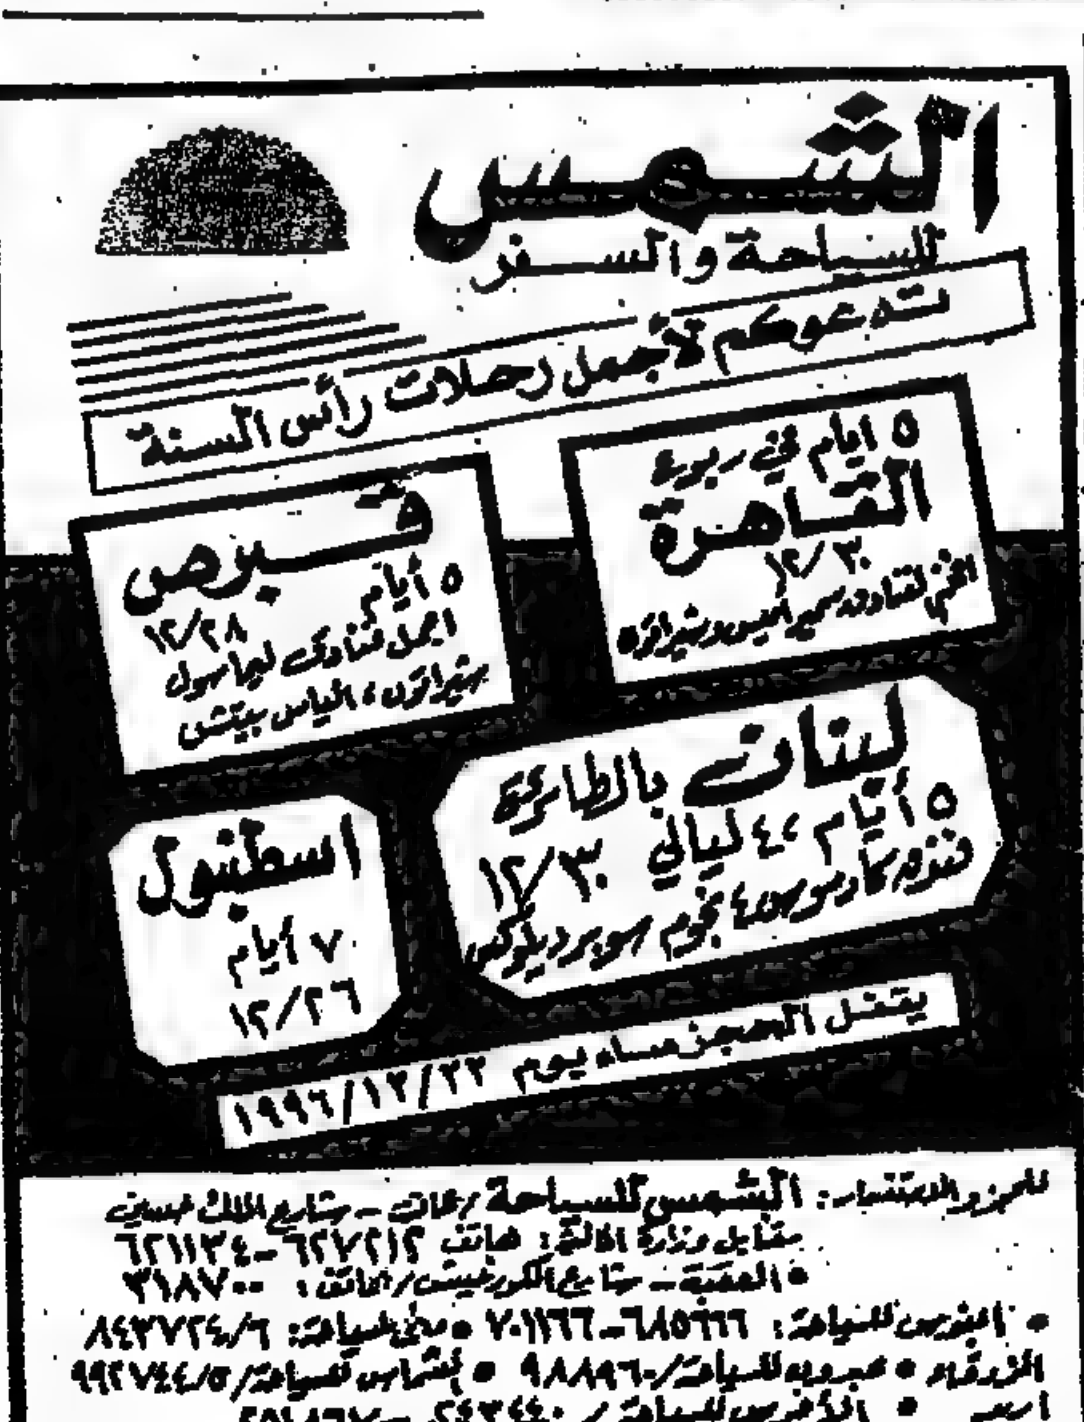 الشمس
للسياحة والسفر
تدعوكم لأجمل رحلات رأس السنة
٥ ايام في ربوع
القاهرة
١٢/٣٠
افخم الفنادق سمير اميس وشيراتون
قبرص
٥ أيام
١٢/٢٨
اجمل فنادق ليماسول
شيراتون، الياس بيتش
لبنان بالطائرة
٥ أيام ،٤ ليالي ١٢/٣٠
فندق كادموس ٤ نجوم سوبر ديلوكس
اسطنبول
٧ أيام
١٢/٢٦
يقفل الحجز مساء يوم ١٩٩٦/١٢/٢٢
للحجز والاستفسار: الشمس للسياحة / عمان - شارع الملك حسين
مقابل وزارة المالية: هاتف ٦٢٧٢١٢ - ٦٢١١٣٤
• العقبة - شارع الكورنيش / هاتف: ٣١٨٧٠٠
• النورس للسياحة: ٦٨٥٦٦٦ - ٧٠١١٦٦ • للسياحة: ٨٤٣٧٢٤/٦
الزرقاء • للسياحة / ٩٨٨٩٦٠ • للسياحة / ٩٩٢٧٤٤/٥